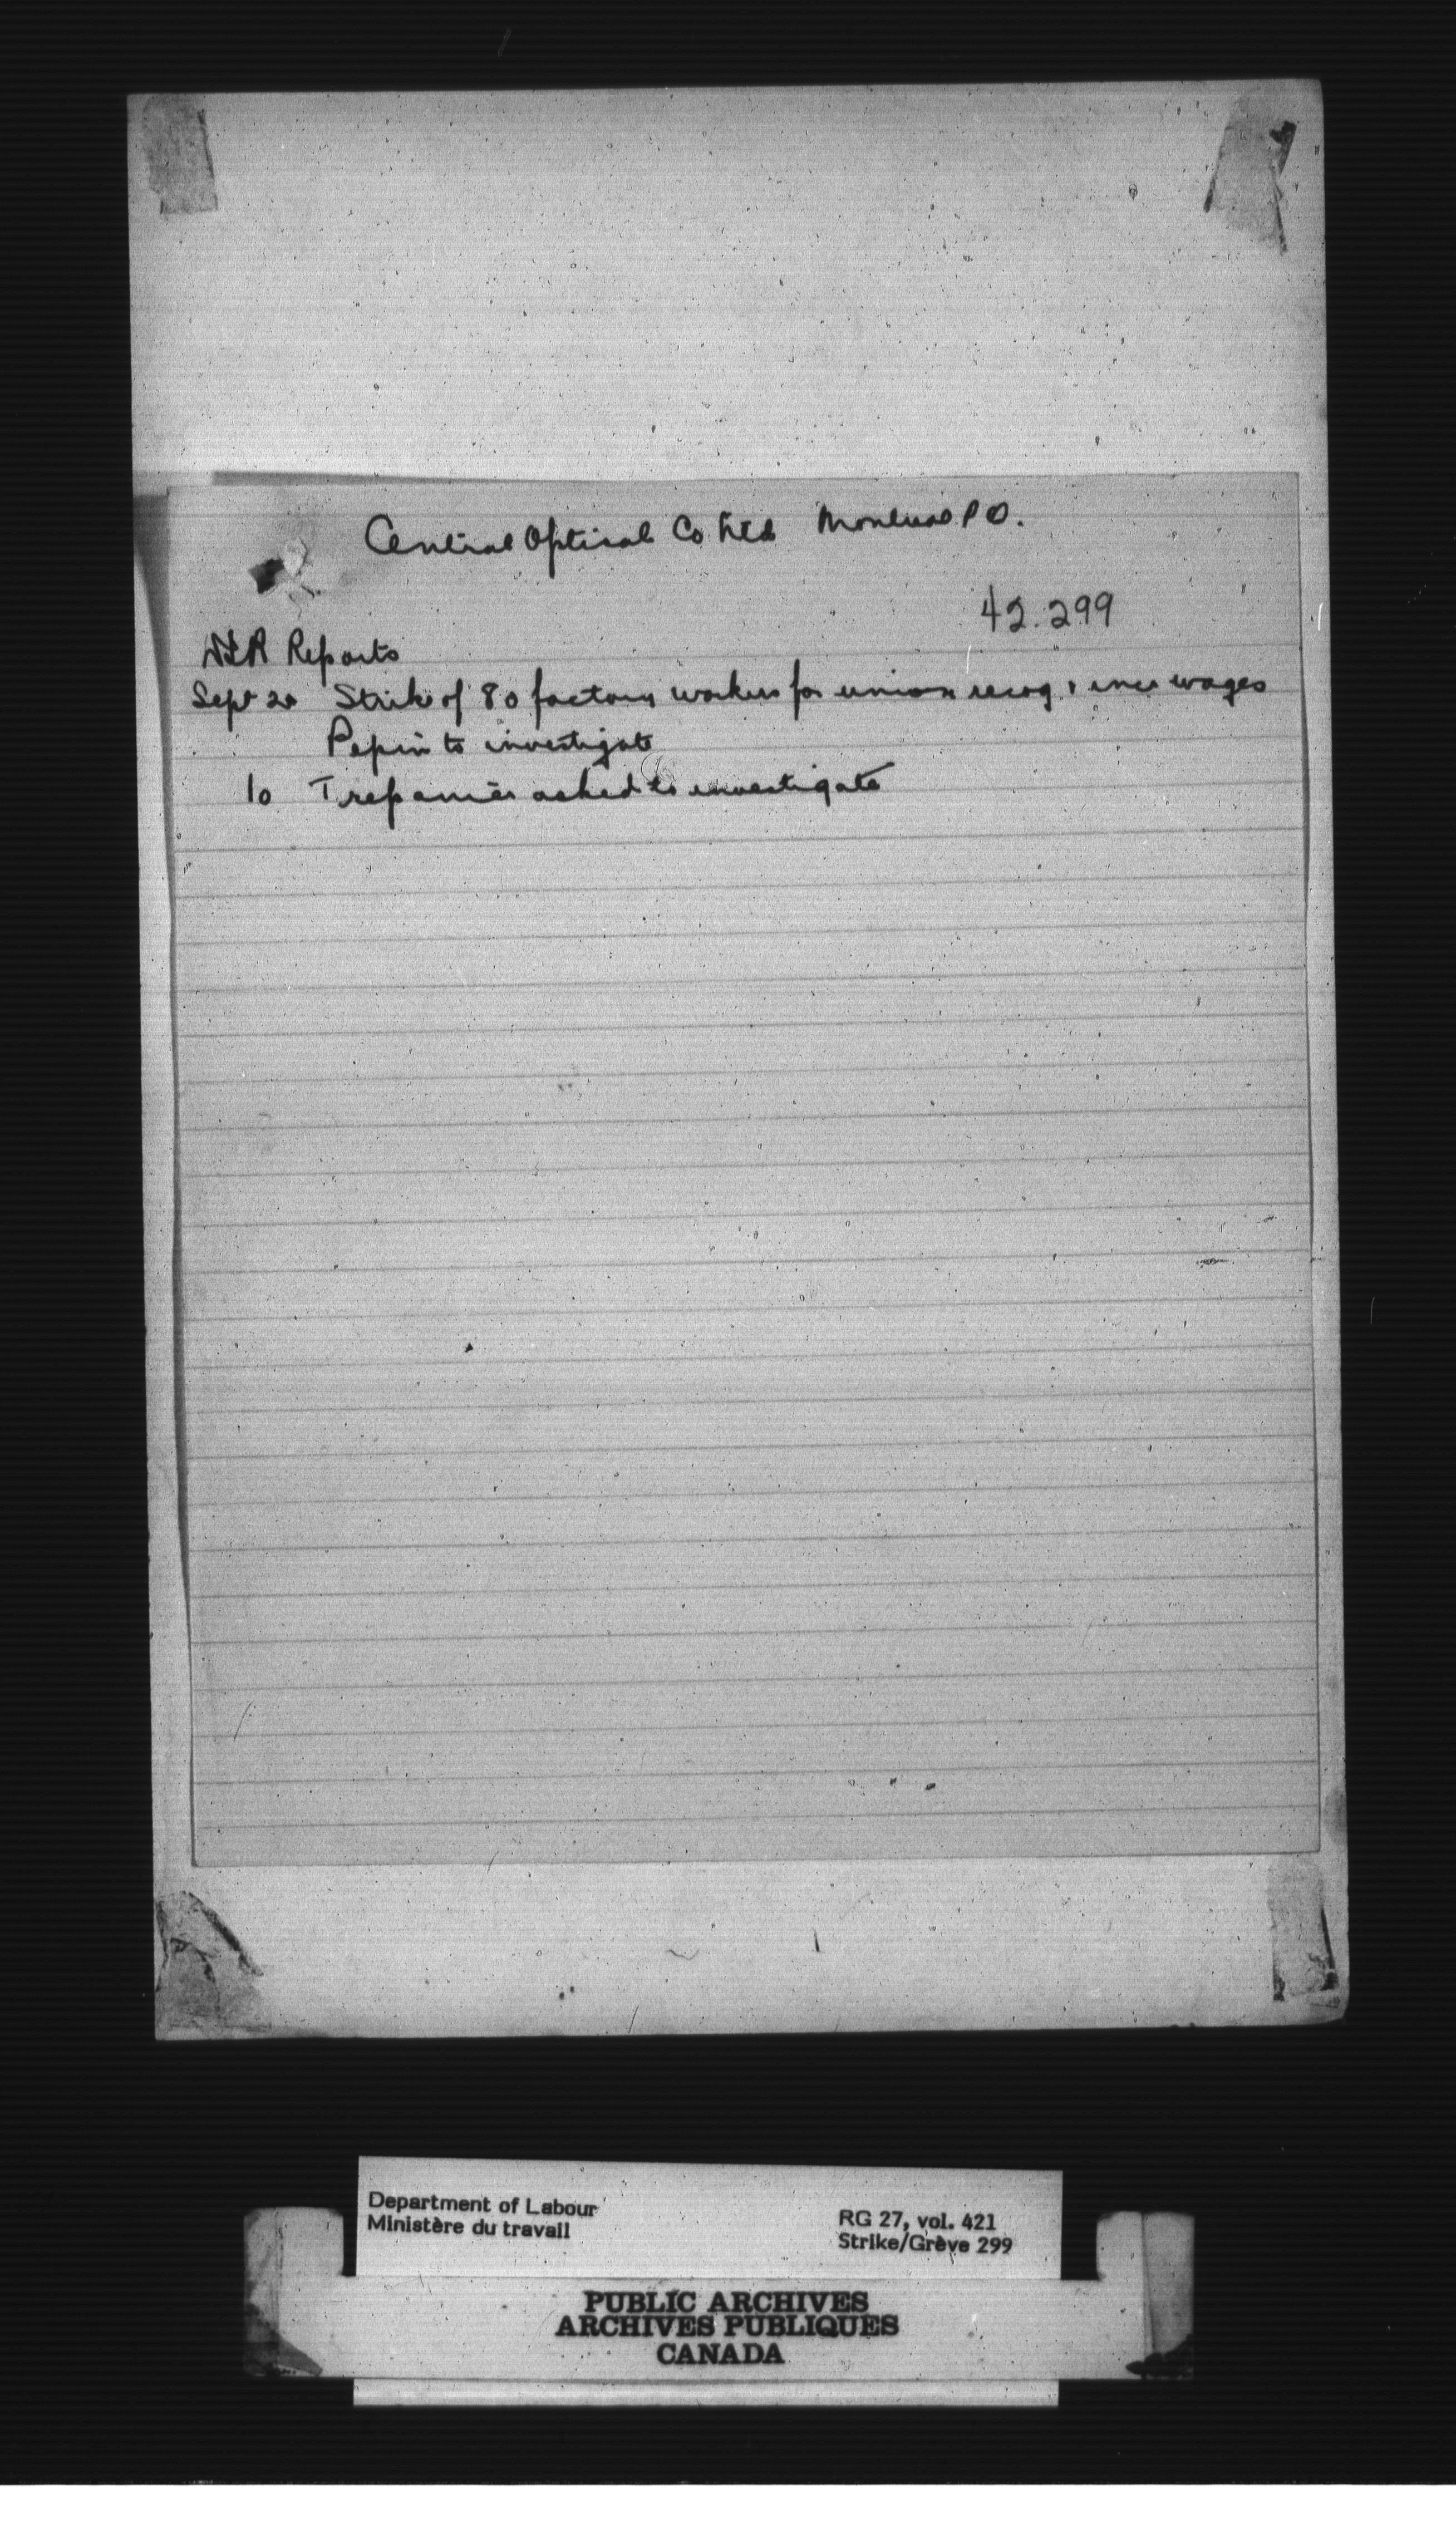 Central Optical Co Ltd Montreal P Q.
42.299
Reports
Sept 20 Strike of 80 factory workers for union recog & incr wages
Pepin to investigate
10 Trepanier asked to investigate
Department of Labour
Ministère du travail
RG 27, vol. 421
Strike/Grève 299
PUBLIC ARCHIVES
ARCHIVES PUBLIQUES
CANADA